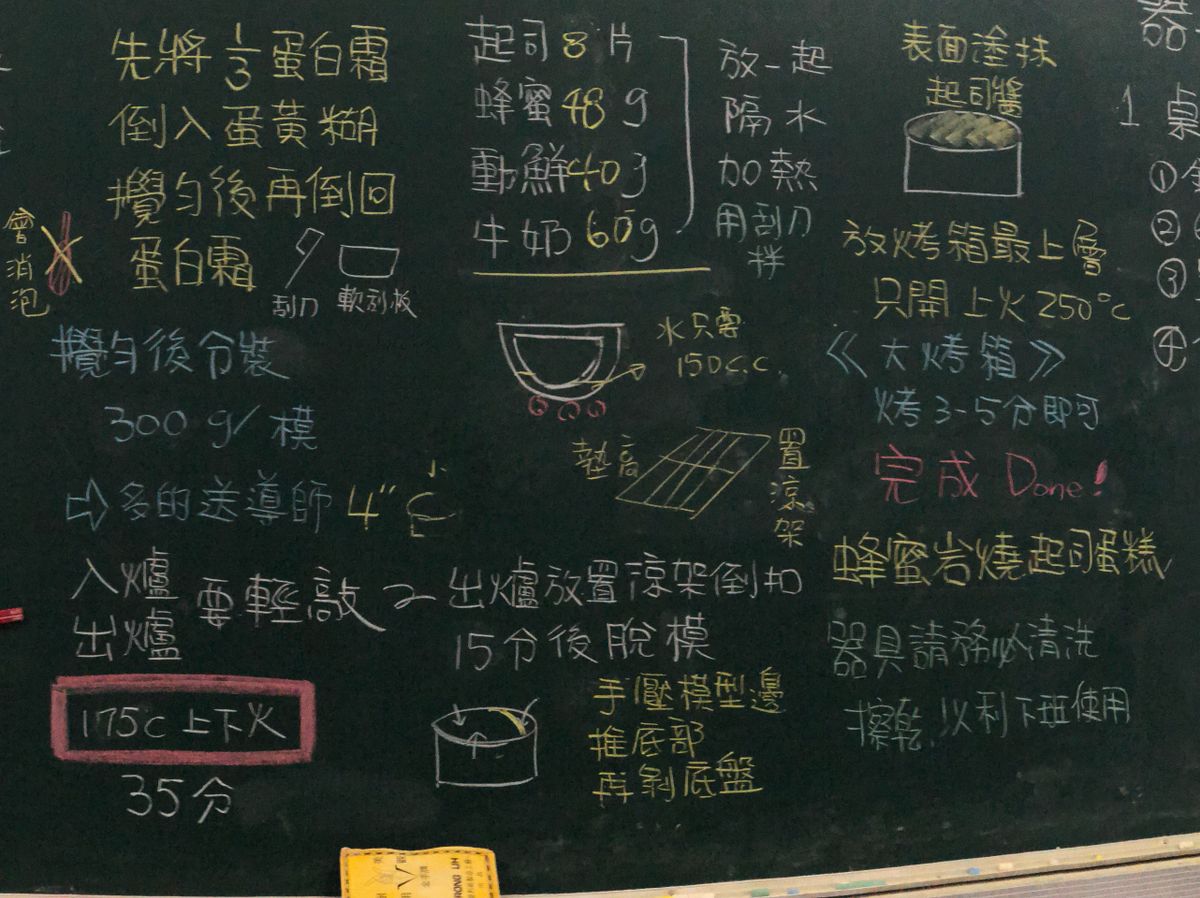 先將 1/3 蛋白霜
倒入蛋黃糊
攪勻後再倒回
蛋白霜
會消泡
刮刀
軟刮板
攪勻後分裝
300 g/模
⇨多的送導師 4"
入爐
出爐
要輕敲
175c 上下火
35分
起司8片
蜂蜜48g
動鮮40g
牛奶60g
放一起
隔水
加熱
用刮刀
拌
水只需
150c.c.
墊高
置涼架
出爐放置涼架倒扣
15分後脫模
手壓模型邊
推底部
再剝底盤
表面塗抹
起司醬
放烤箱最上層
只開上火250°c
《大烤箱》
烤3-5分即可
完成 Done!
蜂蜜岩燒起司蛋糕
器具請務必清洗
擦乾,以利下班使用
器
1 桌
①
②
③
④